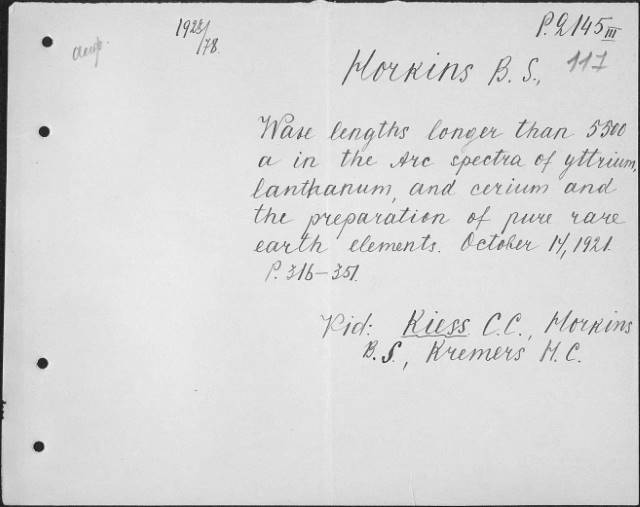 1928/78.
P.2145 III
117
Horkins B. S.,
Wase lengths longer than 5500
a in the Arc spectra of yttrium,
lanthanum, and cerium and
the preparation of pure rare
earth elements. October 14, 1921.
P. 316-351.
Kid: Kiess C.C., Horkins
B.S., Kremers H.C.